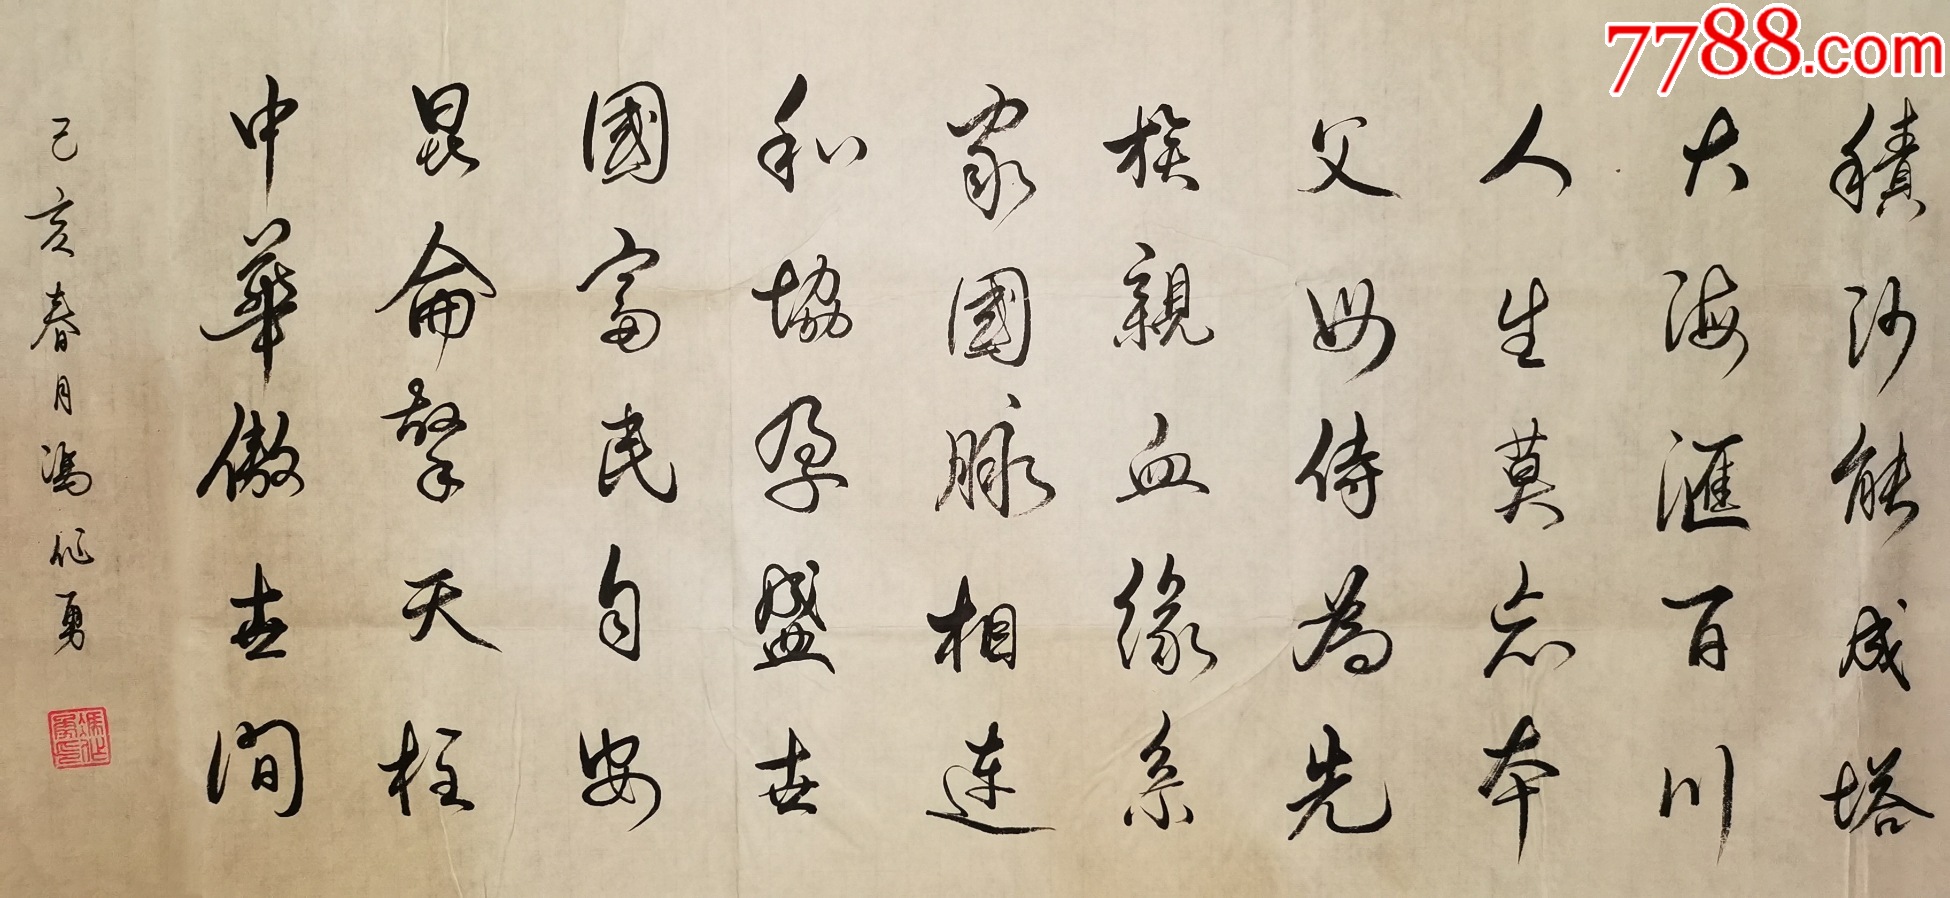 7788.com
積沙能成塔
大海滙百川
人生莫忘本
父母侍為先
族親血緣系
家國脉相連
和協孕盛世
國富民自安
昆侖擎天柱
中華傲世間
己亥春月馮作勇